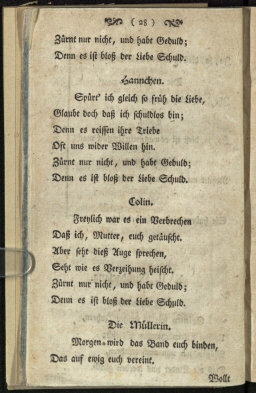 ( 28 )
Zürnt nur nicht, und habt Geduld;
Denn es ist bloß der Liebe Schuld.
Hannchen.
Spürt' ich gleich so früh die Liebe,
Glaubt doch daß ich schuldlos bin;
Denn es reissen ihre Triebe
Oft uns wider Willen hin.
Zürnt nur nicht, und habt Geduld;
Denn es ist bloß der Liebe Schuld.
Colin.
Freylich war es ein Verbrechen
Daß ich, Mutter, euch getäuscht.
Aber seht dieß Auge sprechen,
Seht wie es Verzeihung heischt.
Zürnt nur nicht, und habt Geduld;
Denn es ist bloß der Liebe Schuld.
Die Müllerin.
Morgen wird das Band euch binden,
Das auf ewig euch vereint.
Wollt